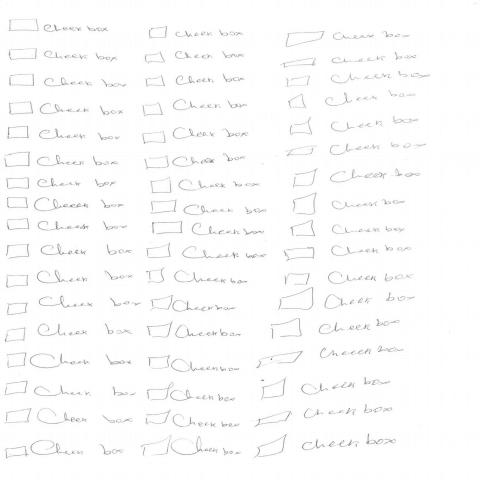 Check box Check box Check box
Check box Check box Check box
Check box Check box Check box
Check box Check box Check box
Check box Check box Check box
Check box Check box Check box
Check box Check box Check box
Check box Check box Check box
Check box Check box Check box
Check box Check box Check box
Check box Check box Check box
Check box Checkbox Check box
Check box Checkbox Check box
Check box Checkbox Check box
Check box Check box Check box
Check box Check box Check box
Check box Check box Check box